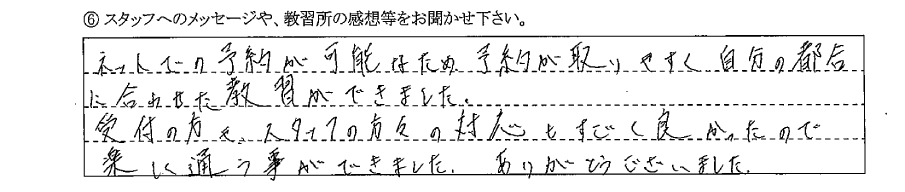 ⑥ スタッフへのメッセージや、教習所の感想等をお聞かせ下さい。
ネットでの予約が可能なため予約が取りやすく自分の都合
に合わせた教習ができました。
受付の方や、スタッフの方々の対応もすごく良かったので
楽しく通う事ができました。ありがとうございました。